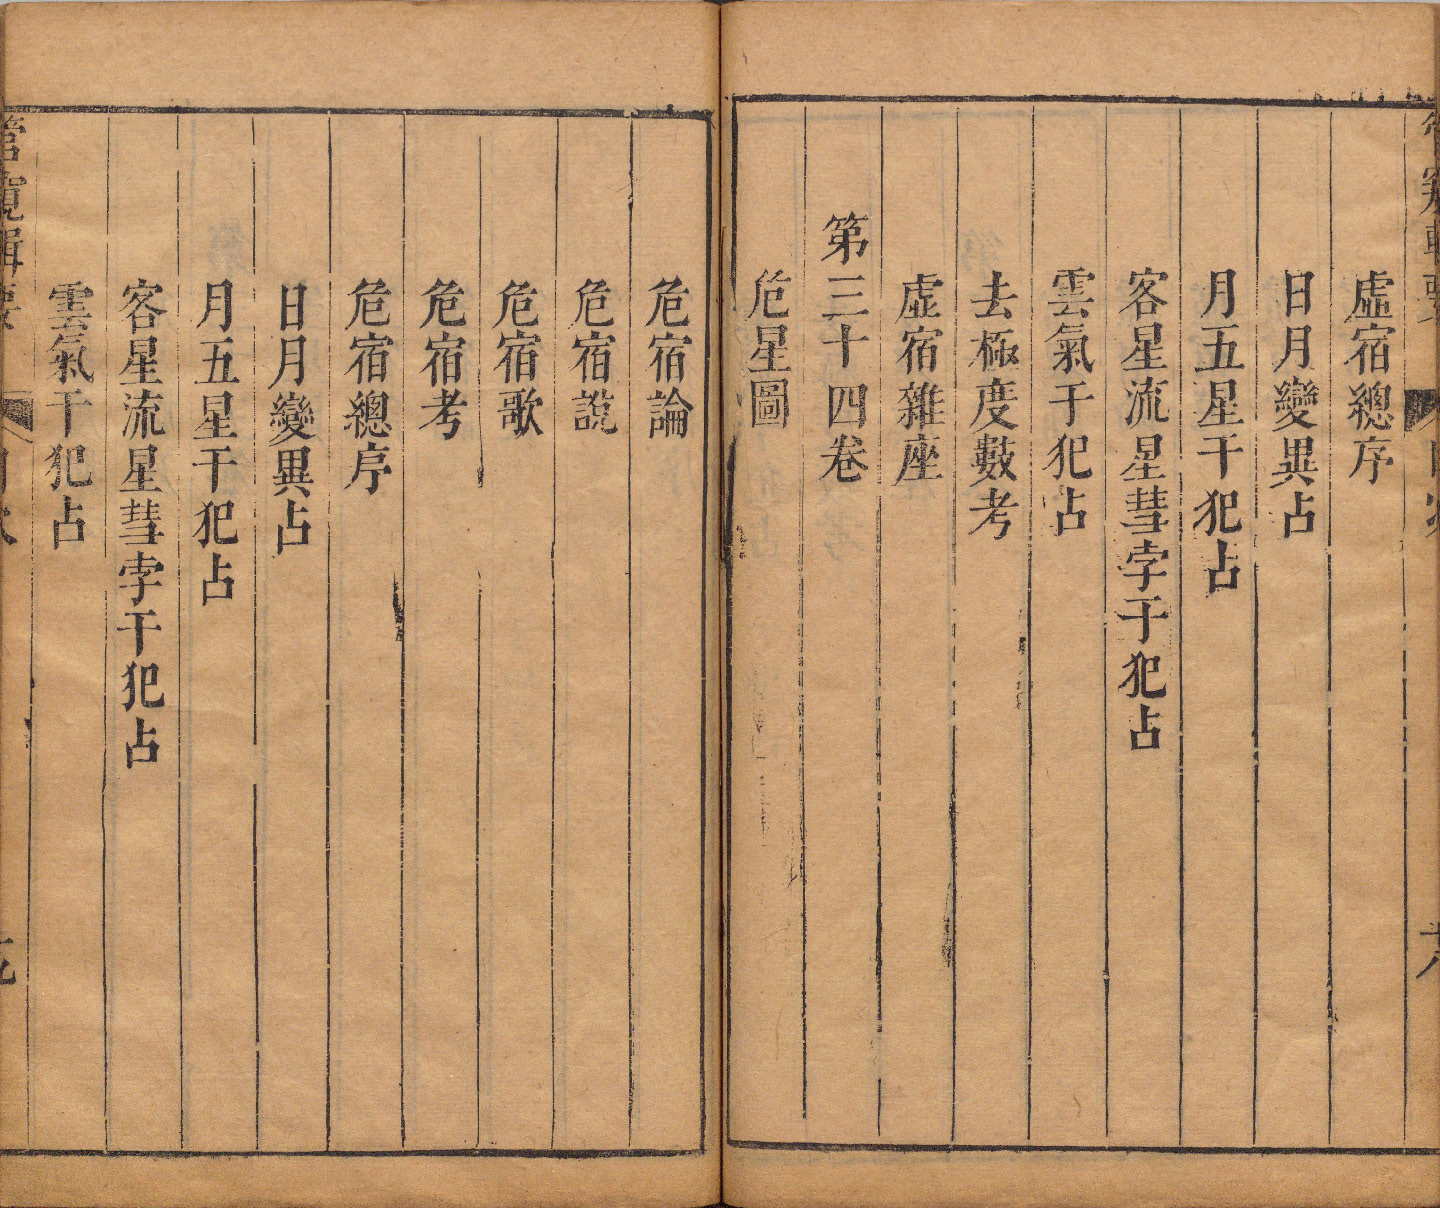 虛宿總序
日月變異占
月五星干犯占
客星流星彗孛干犯占
雲氣干犯占
去極度數考
虛宿雜座
第三十四卷
危星圖
危宿論
危宿說
危宿歌
危宿考
危宿總序
日月變異占
月五星干犯占
客星流星彗孛干犯占
雲氣干犯占